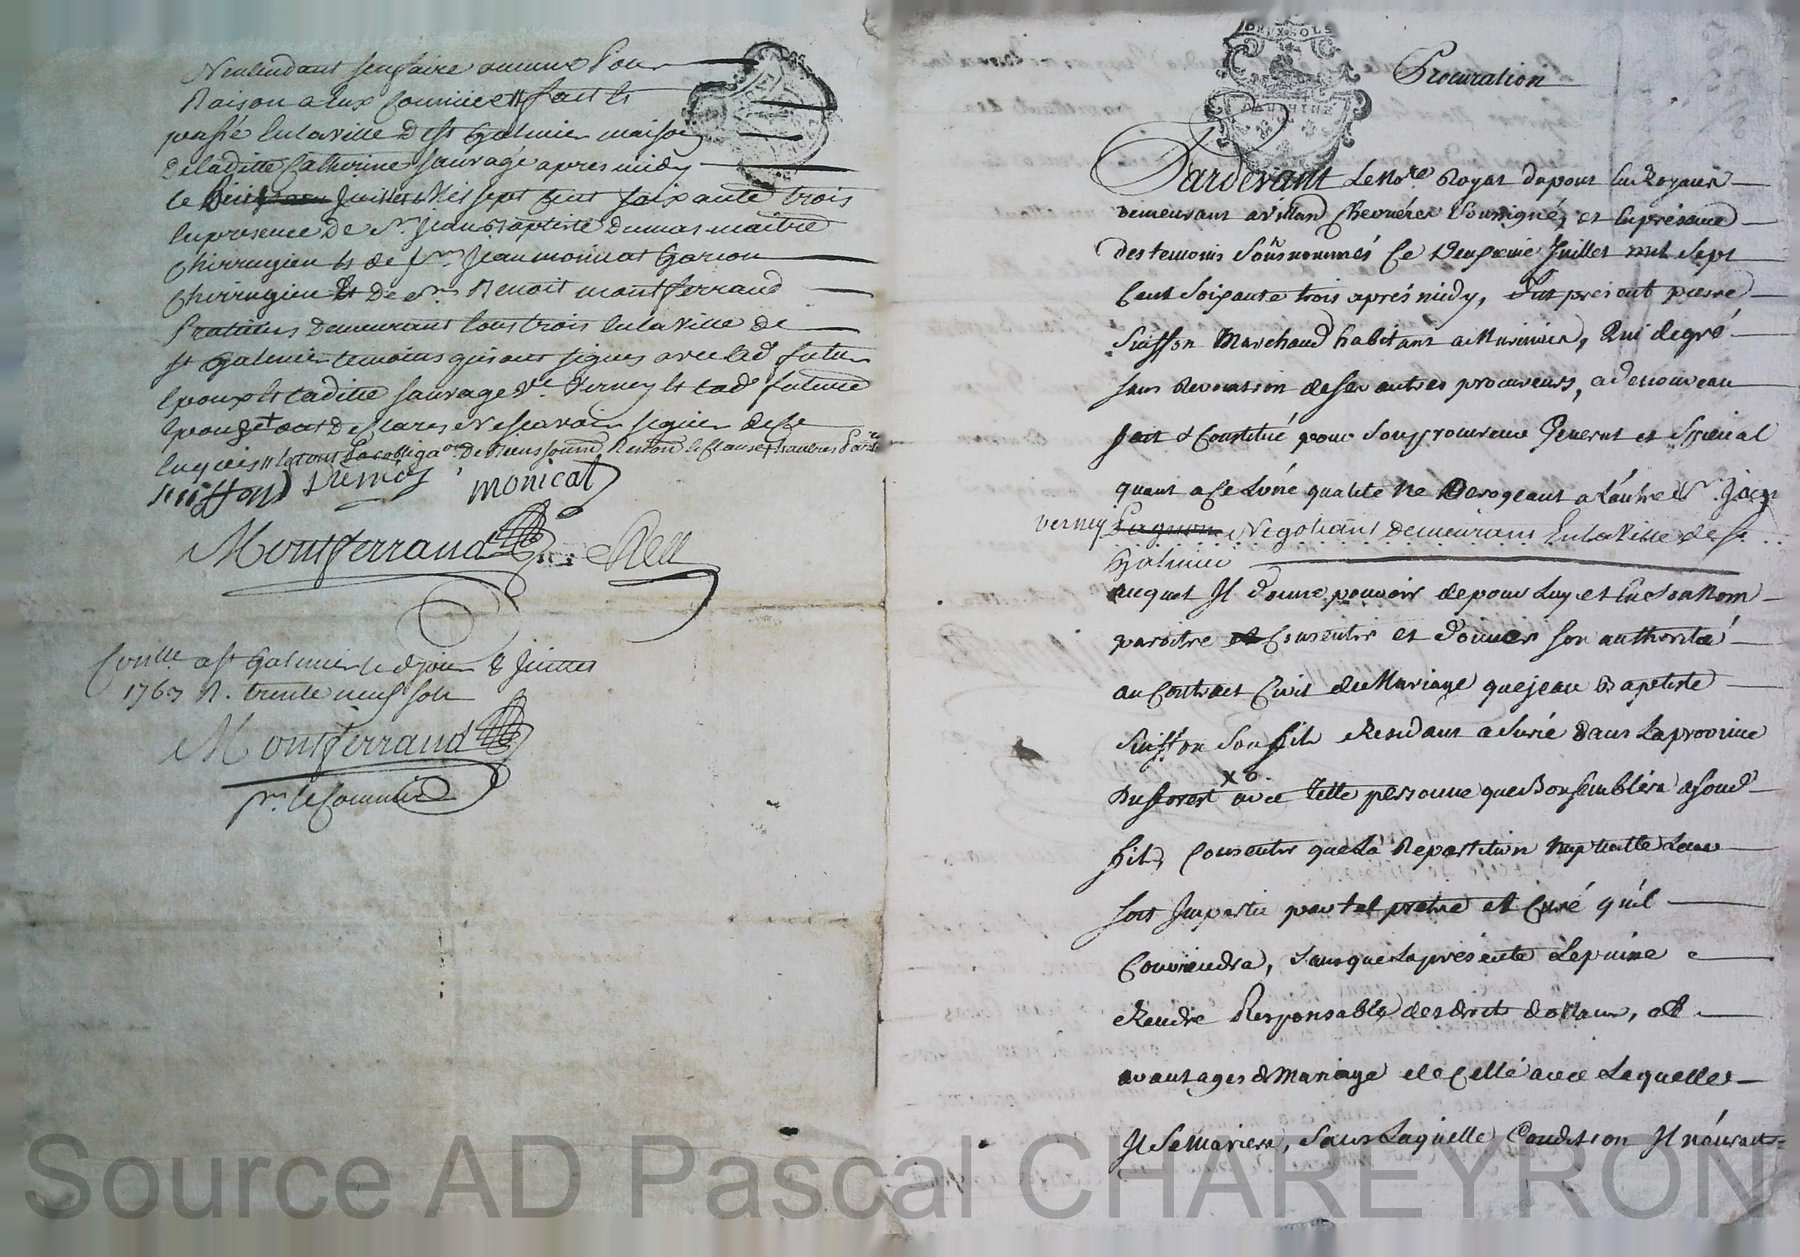 N'entendant se ... faire aucune pour
Raison a eux ... fait et
passé en la ville de St Galmier maison
de laditte Catherine Sauvage apres midy
le ... Juillet mil sept cent soixante trois
en presence de Sr Jean Baptiste Dumas maitre
Chirurgien et de Sr Jean monicat Garcon
Chirurgien et de Sr Benoit montferrand
Praticien demeurant tous trois en la ville de
St Galmier temoins qui ont signes avec led futur
epoux et laditte sauvage ve Verney et lad future
epouze ont declarés ne scavoir signer de ce
enquis
Suisson Dumas monicat
Montferrand
Conllé a St Galmier le d jour 8 Juillet
1763 R. trente neuf sols
Montferrand
pr le Commis
DEUX SOLS
DAUPHINÉ
Procuration
Pardevant Le Nore Royal
demeurant a Soussigné, et En presance
des temoins Sousnommés Ce Deuxieme Juillet mil Sept
Cent Soixante trois aprés midy, fut present pierre
Suisson Marchand habitant a , Qui de gré
sans Revocation de Ses autres procureurs, a de nouveau
fait & Constitué pour Son procureur General et Special
quant a ce L'une qualité ne Derogeant a L'autre Sr Jacq
verney Negotiant Demeurant En la Ville de St
Galmier
auquel Il donne pouvoir de pour Luy et En Son Nom
paroitre et Consentir et donner Son authorité
au Contract Civil de Mariage que jean Baptiste
Suisson Son fils Residant a Surié dans La province
Du forest avec telle personne que Bon Semblera a Sond
fils, Consentir que La Repartition Nuptialle Leur
soit Impartie par tel pretre et Curé qu'il
Conviendra, Sans que La presente Le puisse
Rendre Responsable des droits dottaux, et
avantages de Mariage de Celle avec Laquelle
Il Se Mariera, Sans Laquelle Condition Il n'auroit
Source AD Pascal CHAREYRON